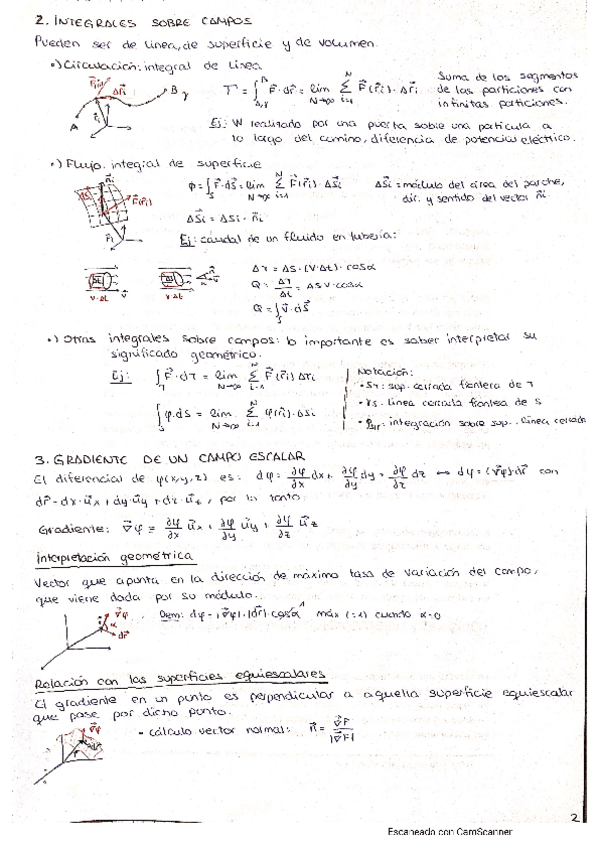 2. INTEGRALES SOBRE CAMPOS
Pueden ser de linea, de superficie y de volumen.
•) Circulación: integral de línea
Γ = ∫_{A,γ}^{B} F⃗·dr⃗ = lim_{N→∞} Σ_{i=1}^{N} F⃗(r⃗i)·Δr⃗i
Suma de los segmentos
de las particiones con
infinitas particiones.
A B γ r⃗i Δr⃗i
Ej: W realizado por una fuerza sobre una partícula a
lo largo del camino, diferencia de potencial eléctrico.
•) Flujo: integral de superficie
Φ = ∫_S F⃗·dS⃗ = lim_{N→∞} Σ_{i=1}^{N} F⃗(r⃗i)·ΔS⃗i
ΔSi = módulo del área del parche,
dir. y sentido del vector n⃗i
ΔS⃗i = ΔSi·n⃗i
n⃗i F⃗(r⃗i) r⃗i
Ej: caudal de un fluido en tubería:
Δτ = ΔS·(V·Δt)·cosα
Q = Δτ/Δt = ΔS V·cosα
Q = ∫_S v⃗·dS⃗
V·Δt v⃗ V·Δt
•) Otras integrales sobre campos: lo importante es saber interpretar su
significado geométrico.
Ej: ∫_τ F⃗·dτ = lim_{N→∞} Σ_{i=1}^{N} F⃗(r⃗i) Δτi
∫_S φ·dS = lim_{N→∞} Σ_{i=1}^{N} φ(r⃗i)·ΔSi
Notación:
• Sτ: sup. cerrada frontera de τ
• γs: línea cerrada frontera de S
integración sobre sup.. línea cerrada
3. GRADIENTE DE UN CAMPO ESCALAR
El diferencial de φ(x,y,z) es: dφ = ∂φ/∂x dx + ∂φ/∂y dy + ∂φ/∂z dz ↔ dφ = (∇⃗φ)·dr⃗ con
dr⃗ = dx·u⃗x + dy·u⃗y + dz·u⃗z, por lo tanto:
Gradiente: ∇⃗φ ≡ ∂φ/∂x u⃗x + ∂φ/∂y u⃗y + ∂φ/∂z u⃗z
Interpretación geométrica
Vector que apunta en la dirección de máxima tasa de variación del campo,
que viene dada por su módulo.
Dem: dφ = |∇⃗φ|·|dr⃗|·cosα máx (=1) cuando α=0
∇⃗φ α dr⃗
Relación con las superficies equiescalares
El gradiente en un punto es perpendicular a aquella superficie equiescalar
que pase por dicho punto.
- cálculo vector normal: n⃗ = ∇⃗F/|∇⃗F|
∇⃗φ
2
Escaneado con CamScanner